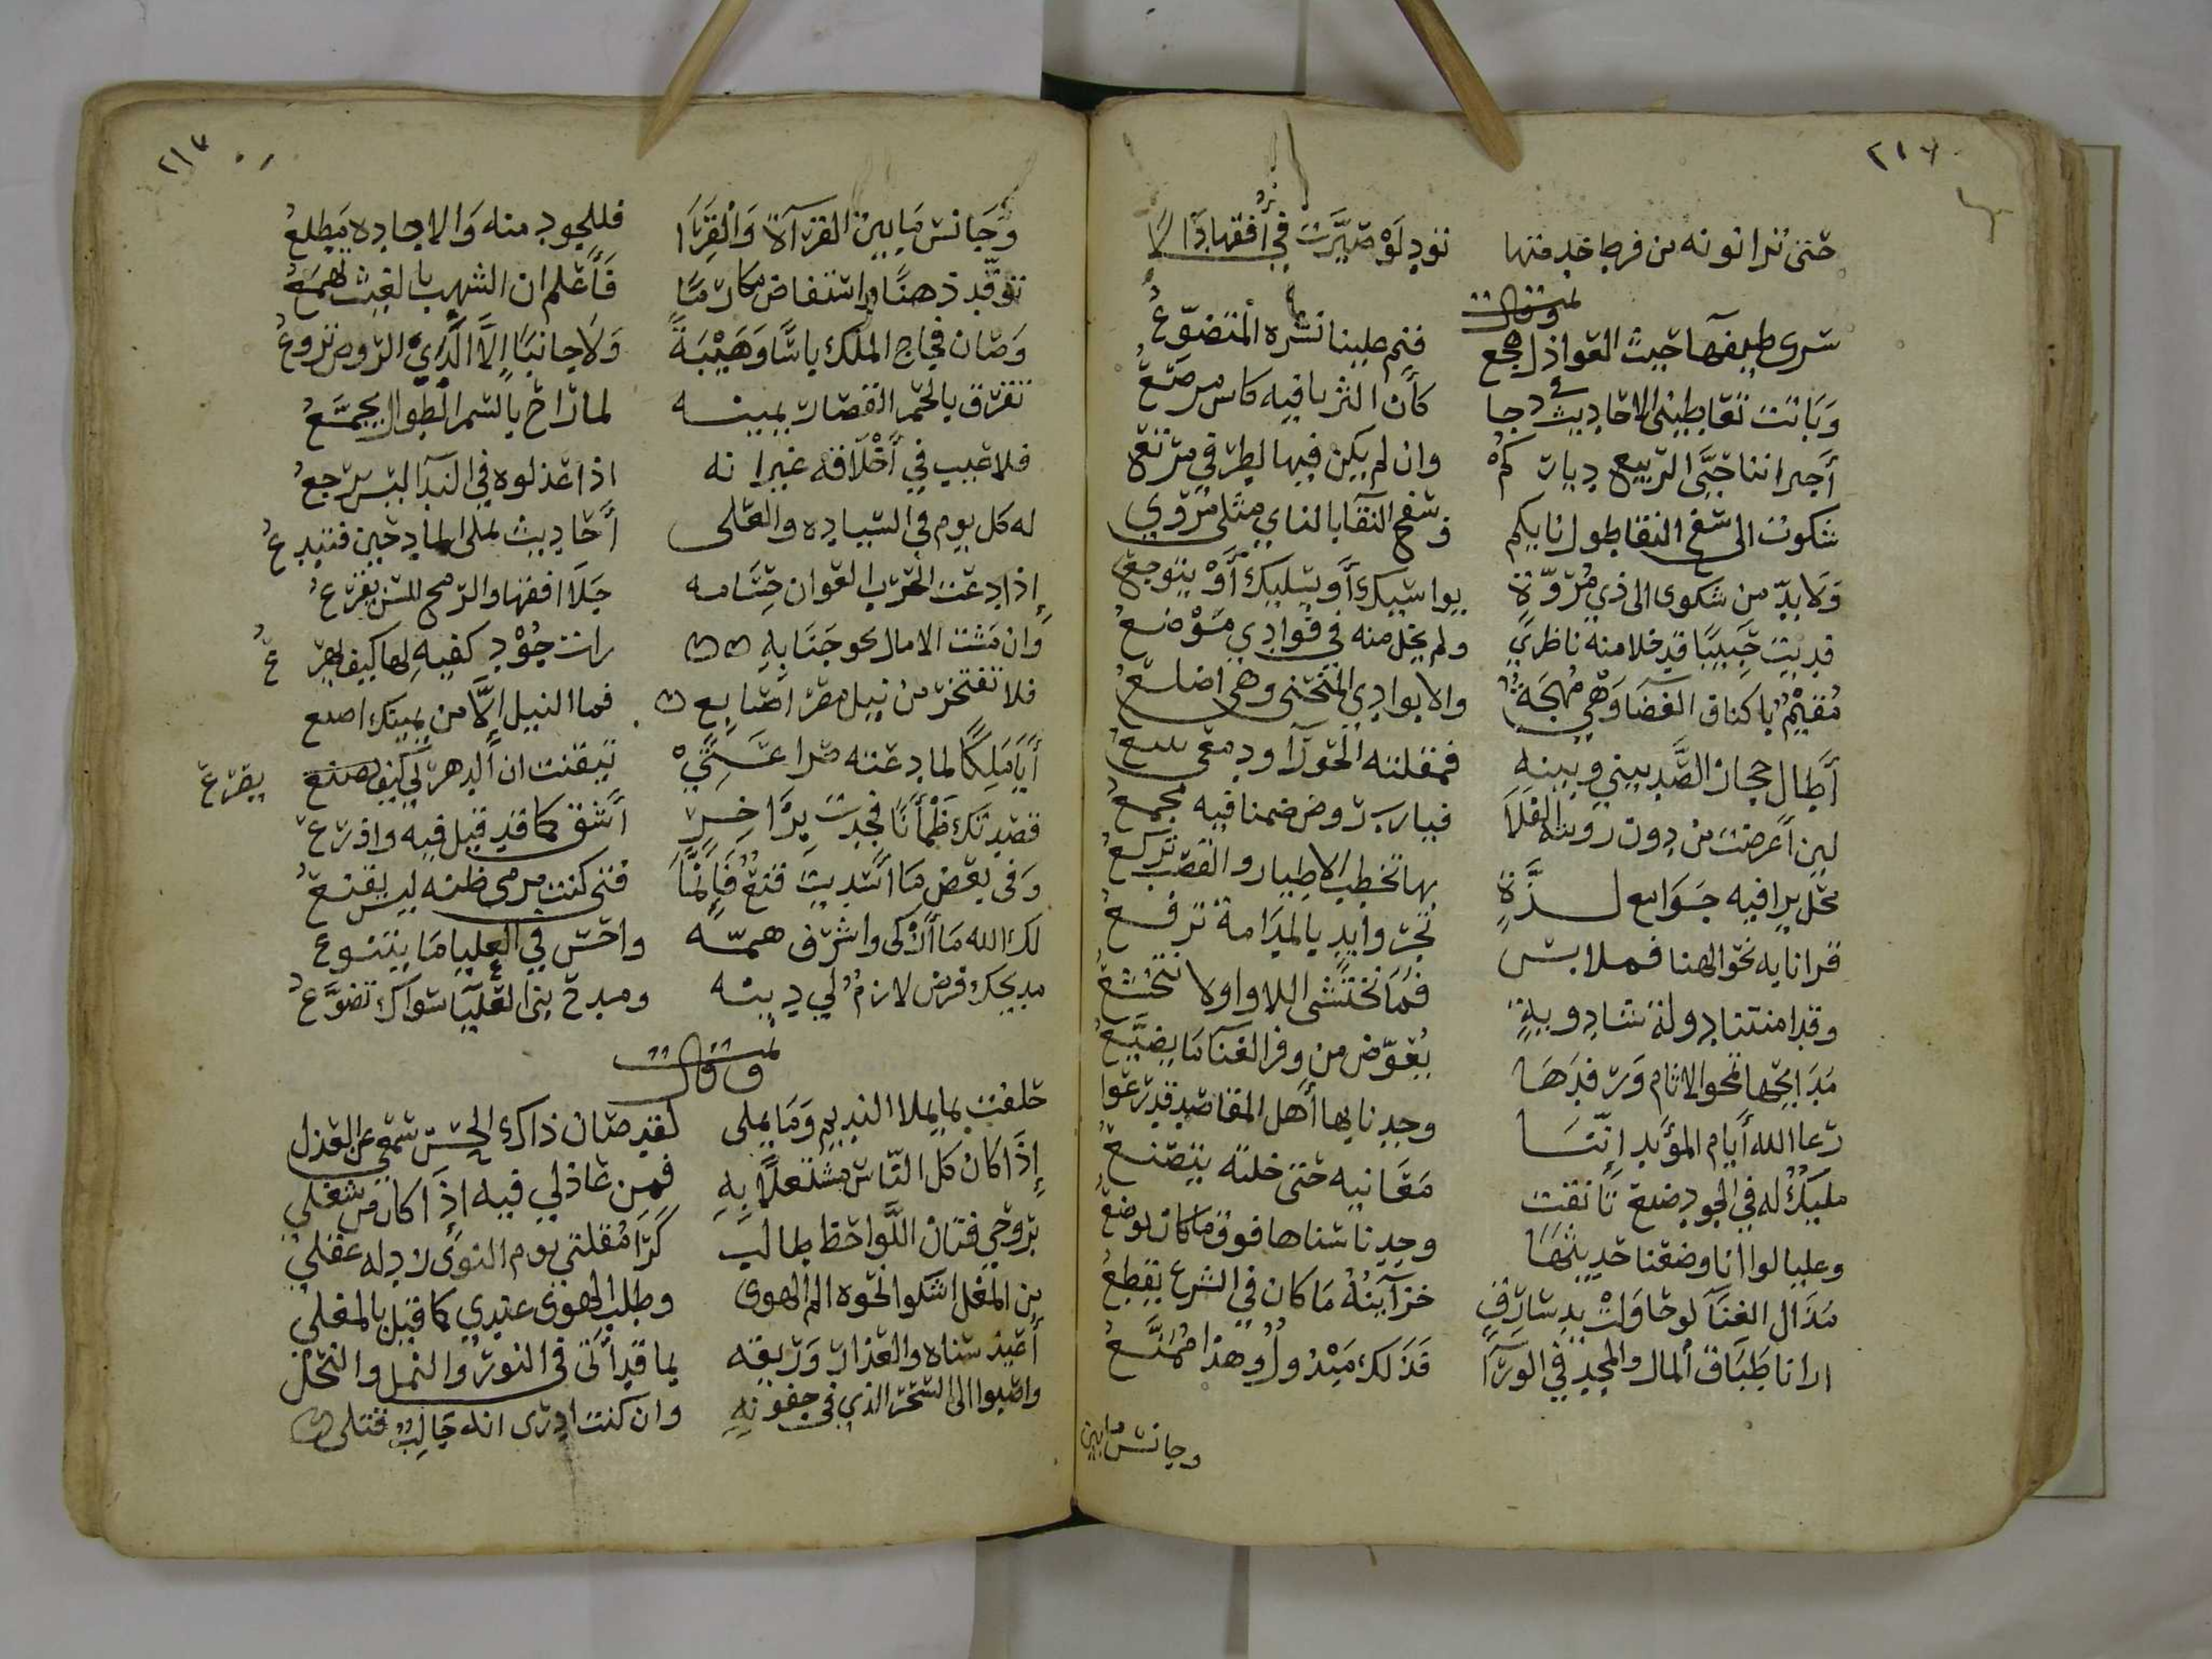 ٢١٦
حتى نرا نونه من فرط خدمتها تود لو صيرت في أفقها دالا
وقال
سرى طيفها حيث العواذل هجع فنم علينا نشره المتضوع
وباتت تعاطيني الاحاديث في دجا كأن الثريا فيه كاس مرصع
أجيراننا حيى الربيع دياركم وان لم يكن فيها لطرفي مرتع
شكوت الى سفح النقا طول نايكم وسفح النقا بالناي مثلي مروع
ولا بد من شكوى الى ذي مروة يواسيك أو يسليك أو يتوجع
فديت حبيبا قد خلا منه ناظري ولم يخل منه في فوادي موضع
مقيم باكناف الغضا وهي مهجة والا بوادي المنحنى وهي اضلع
أطال حجاز الصد بيني وبينه فمقلته الحورا ودمعي ينبع
لين أعرضت من دون رويته الفلا فيا رب روض ضمنا فيه مجمع
محل يرا فيه جوامع لذة بها تخطب الاطيار والقضب تركع
قرانا به نحو الهنا فملابس تجر وايد بالمدامة ترفع
وقد امنتنا دولة شادوية فما نختشى اللاوا ولا نتخشع
مدايحها تمحو الاثام ورفدها يعوض من وفر الغنا ما يضيع
رعا الله أيام المؤيد إننا وجدنا بها أهل المقاصد قد رعوا
مليك له في الجود صنع تأنقت معانيه حتى خلته يتصنع
وعليا لو انا وضعنا حديثها وجدنا سناها فوق ما كان يوضع
مذال الغنا لو حاولت يد سارق خزاينه ما كان في الشرع يقطع
ارانا طباق المال والمجد في الورا فذلك مبذول وهذا ممنع
وجانس ما بين
٢١٧
وجانس ما بين القرآة والقرا فللجود منه والاجاده مطلع
توقد ذهنا واستفاض مكارما فأعلم ان الشهب بالغيث تهمع
وصان فجاج الملك باسا وهيبة ولا جانيا إلا الذي الروض تروع
تفرق بالحمر القصار يمينه لما راح بالسمر الطوال يجمع
فلا عيب في أخلاقه غير انه اذا عذلوه في الندا ليس يرجع
له كل يوم في السياده والعلى أحاديث تملى المادحين فتبدع
إذا دعت الحرب العوان حسامه جلا افقها والرمح للسن يقرع
وان مشت الامال نحو جنابه رات جود كفيه لها كيف يهرع
فلا تفتخر من نيل مصر اصابع فما النيل إلا من يمينك اصبع
أيا ملكا لما دعته ضراعتي تيقنت ان الدهر لي كيف يصنع يضرع
قصدتك ظمأنا فجدت براخر أشق كما قد قيل فيه واذرع
وفى بعض ما أسديت قنع فإنما فتى كنت مرمى ظنه ليس يقنع
لك الله ما أذكى واشرف همة واحسن في العليا ما يتنوع
مديحك فرض لازم لي دينه ومدح بني العليا سواك تضوع
وقال
حلفت بما يملا النديم وما يملى لقد صان ذاك الحسن سمعي عن العذل
إذا كان كل الناس مشتعلا به فمن عاذلي فيه اذا كان من شغلي
بروحي فتان اللواحظ طالب كرا مقلتي يوم النوى لا دله عقلي
من المغل اشكوا نحوه الم الهوى وطلب الهوى عندي كما قيل بالمغلي
أعيذ سناه والعذار وريقه بما قد أتى في النور والنمل والنحل
واصبوا الى السحر الذي في جفونه وان كنت ادرى انه جالب قتلي